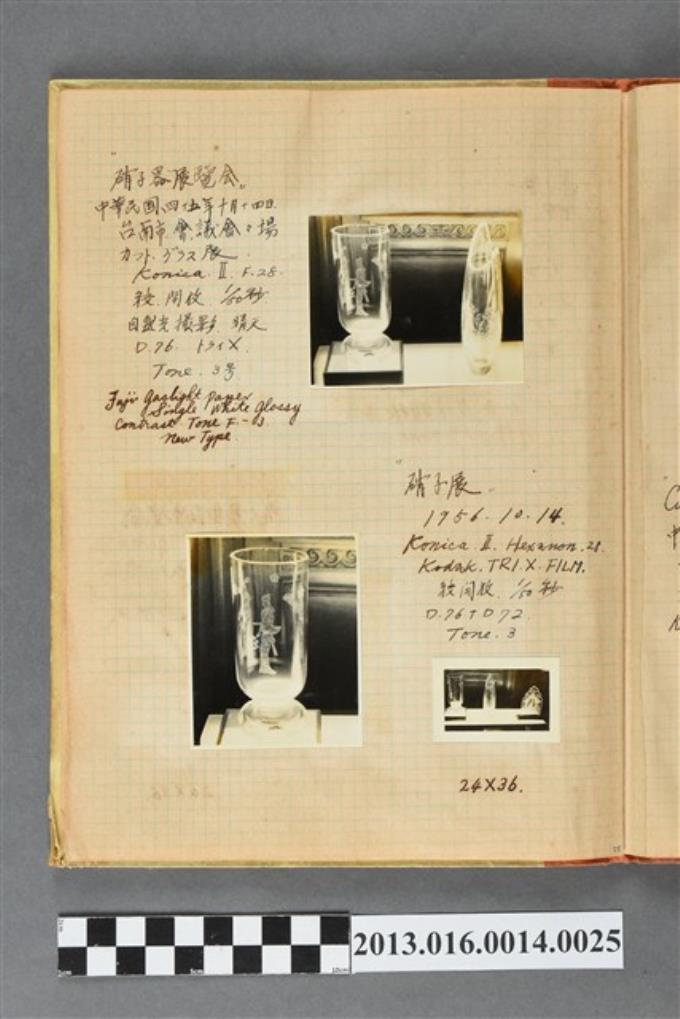 "硝子器展覧会"
中華民国四十五年十月十四日
台南市會議會々場
カットグラス展.
Konica. II. F.28.
絞.開放. 1/50秒
自然光撮影. 晴天
D.76. トライX.
Tone. 3号
Fuji Gaslight Paper
Single White Glossy
Contrast Tone F.-03.
New Type.
"硝子展"
1956.10.14.
Konica. II. Hexanon. 28.
Kodak. TRI. X. FILM.
絞開放. 1/50秒
D.76+D72.
Tone. 3
24X36.
2cm
5cm
10cm
2013.016.0014.0025